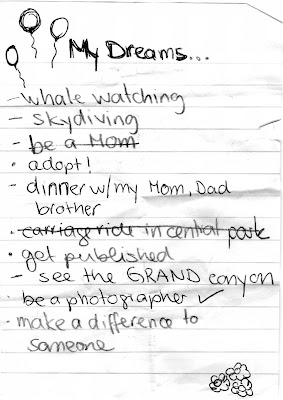 My Dreams...
- whale watching
- skydiving
- be a Mom
• adopt!
- dinner w/my Mom, Dad
brother
• carriage ride in central park
• get published
- see the GRAND canyon
• be a photographer ✓
• make a difference to
someone